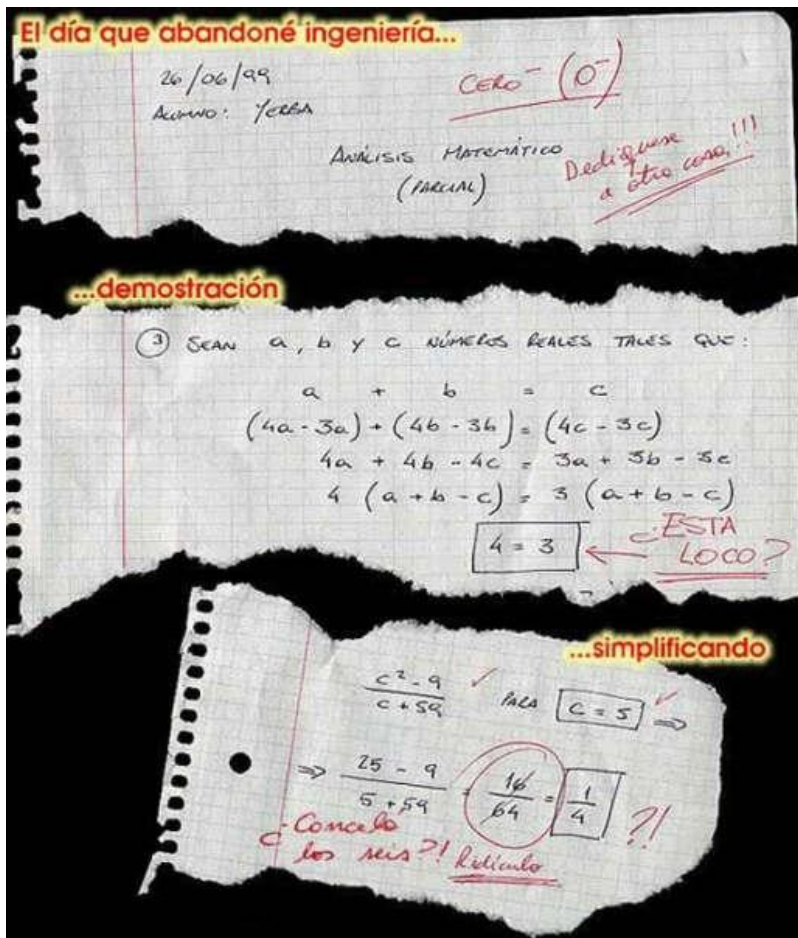 El día que abandoné ingeniería...
26/06/99
CERO⁻ (0⁻)
ALUMNO: YERBA
ANÁLISIS MATEMÁTICO
(PARCIAL)
Dedíquese
a otra cosa!!!
...demostración
3 SEAN a, b y c NÚMEROS REALES TALES QUE:
a + b = c
(4a - 3a) + (4b - 3b) = (4c - 3c)
4a + 4b - 4c = 3a + 3b - 3c
4 (a + b - c) = 3 (a + b - c)
4 = 3 ← ¿ESTA
LOCO?
...simplificando
c² - 9 / c + 59 PARA c = 5 ⇒
⇒ 25 - 9 / 5 + 59 = 16 / 64 = 1 / 4 ?!
¿Cancela
los seis?! Ridículo